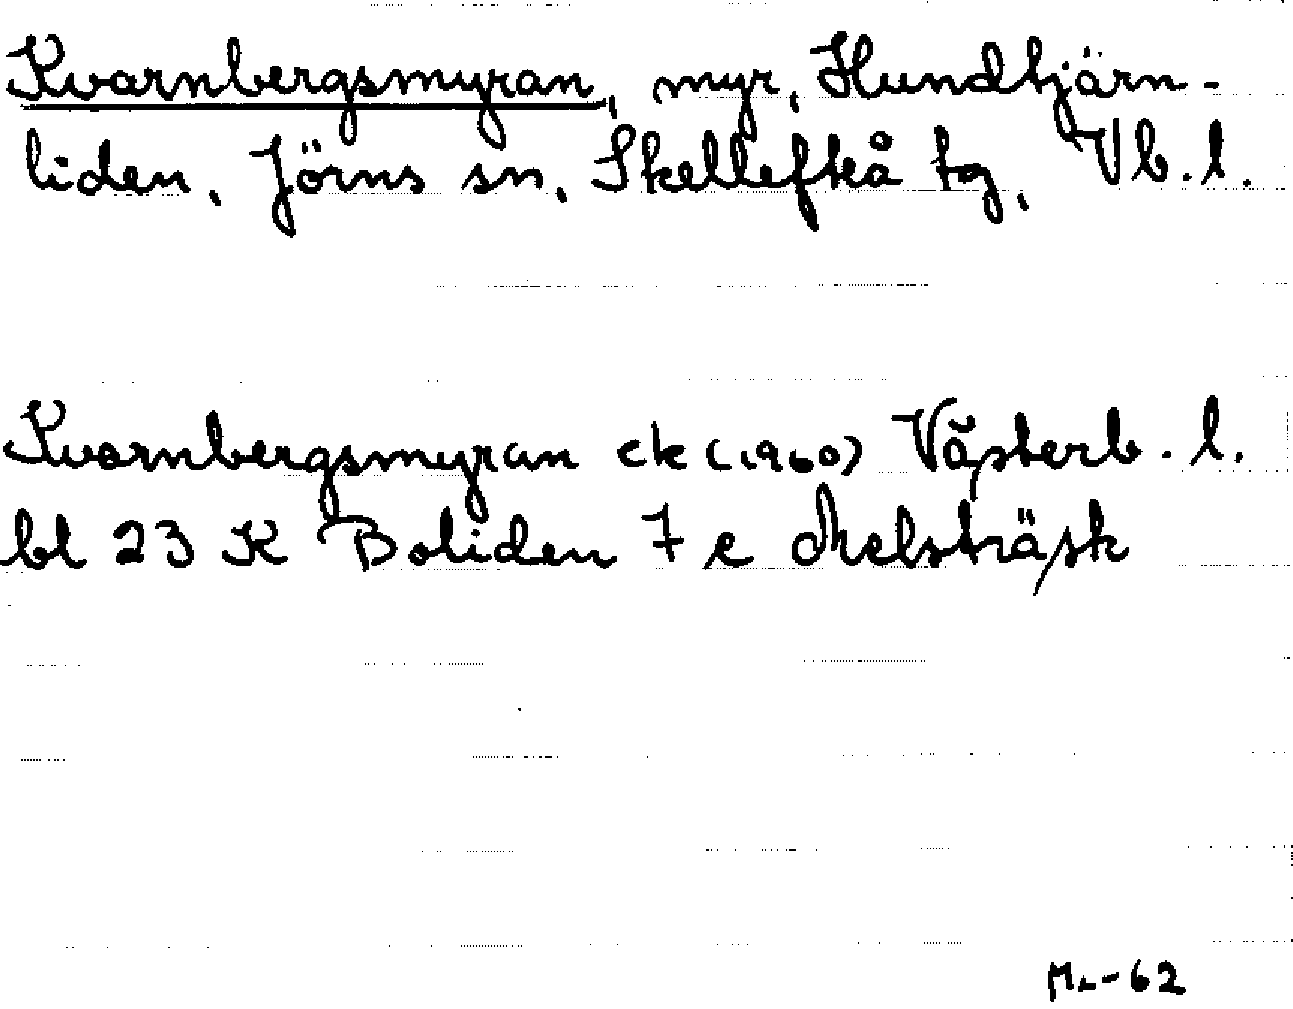 Kvarnbergsmyran, myr, Hundtjärn-
liden, Jörns sn, Skellefteå tg, Vb.l.
Kvarnbergsmyran ek (1960) Västerb. l.
bl 23 K Boliden 7 e Melsträsk
-62